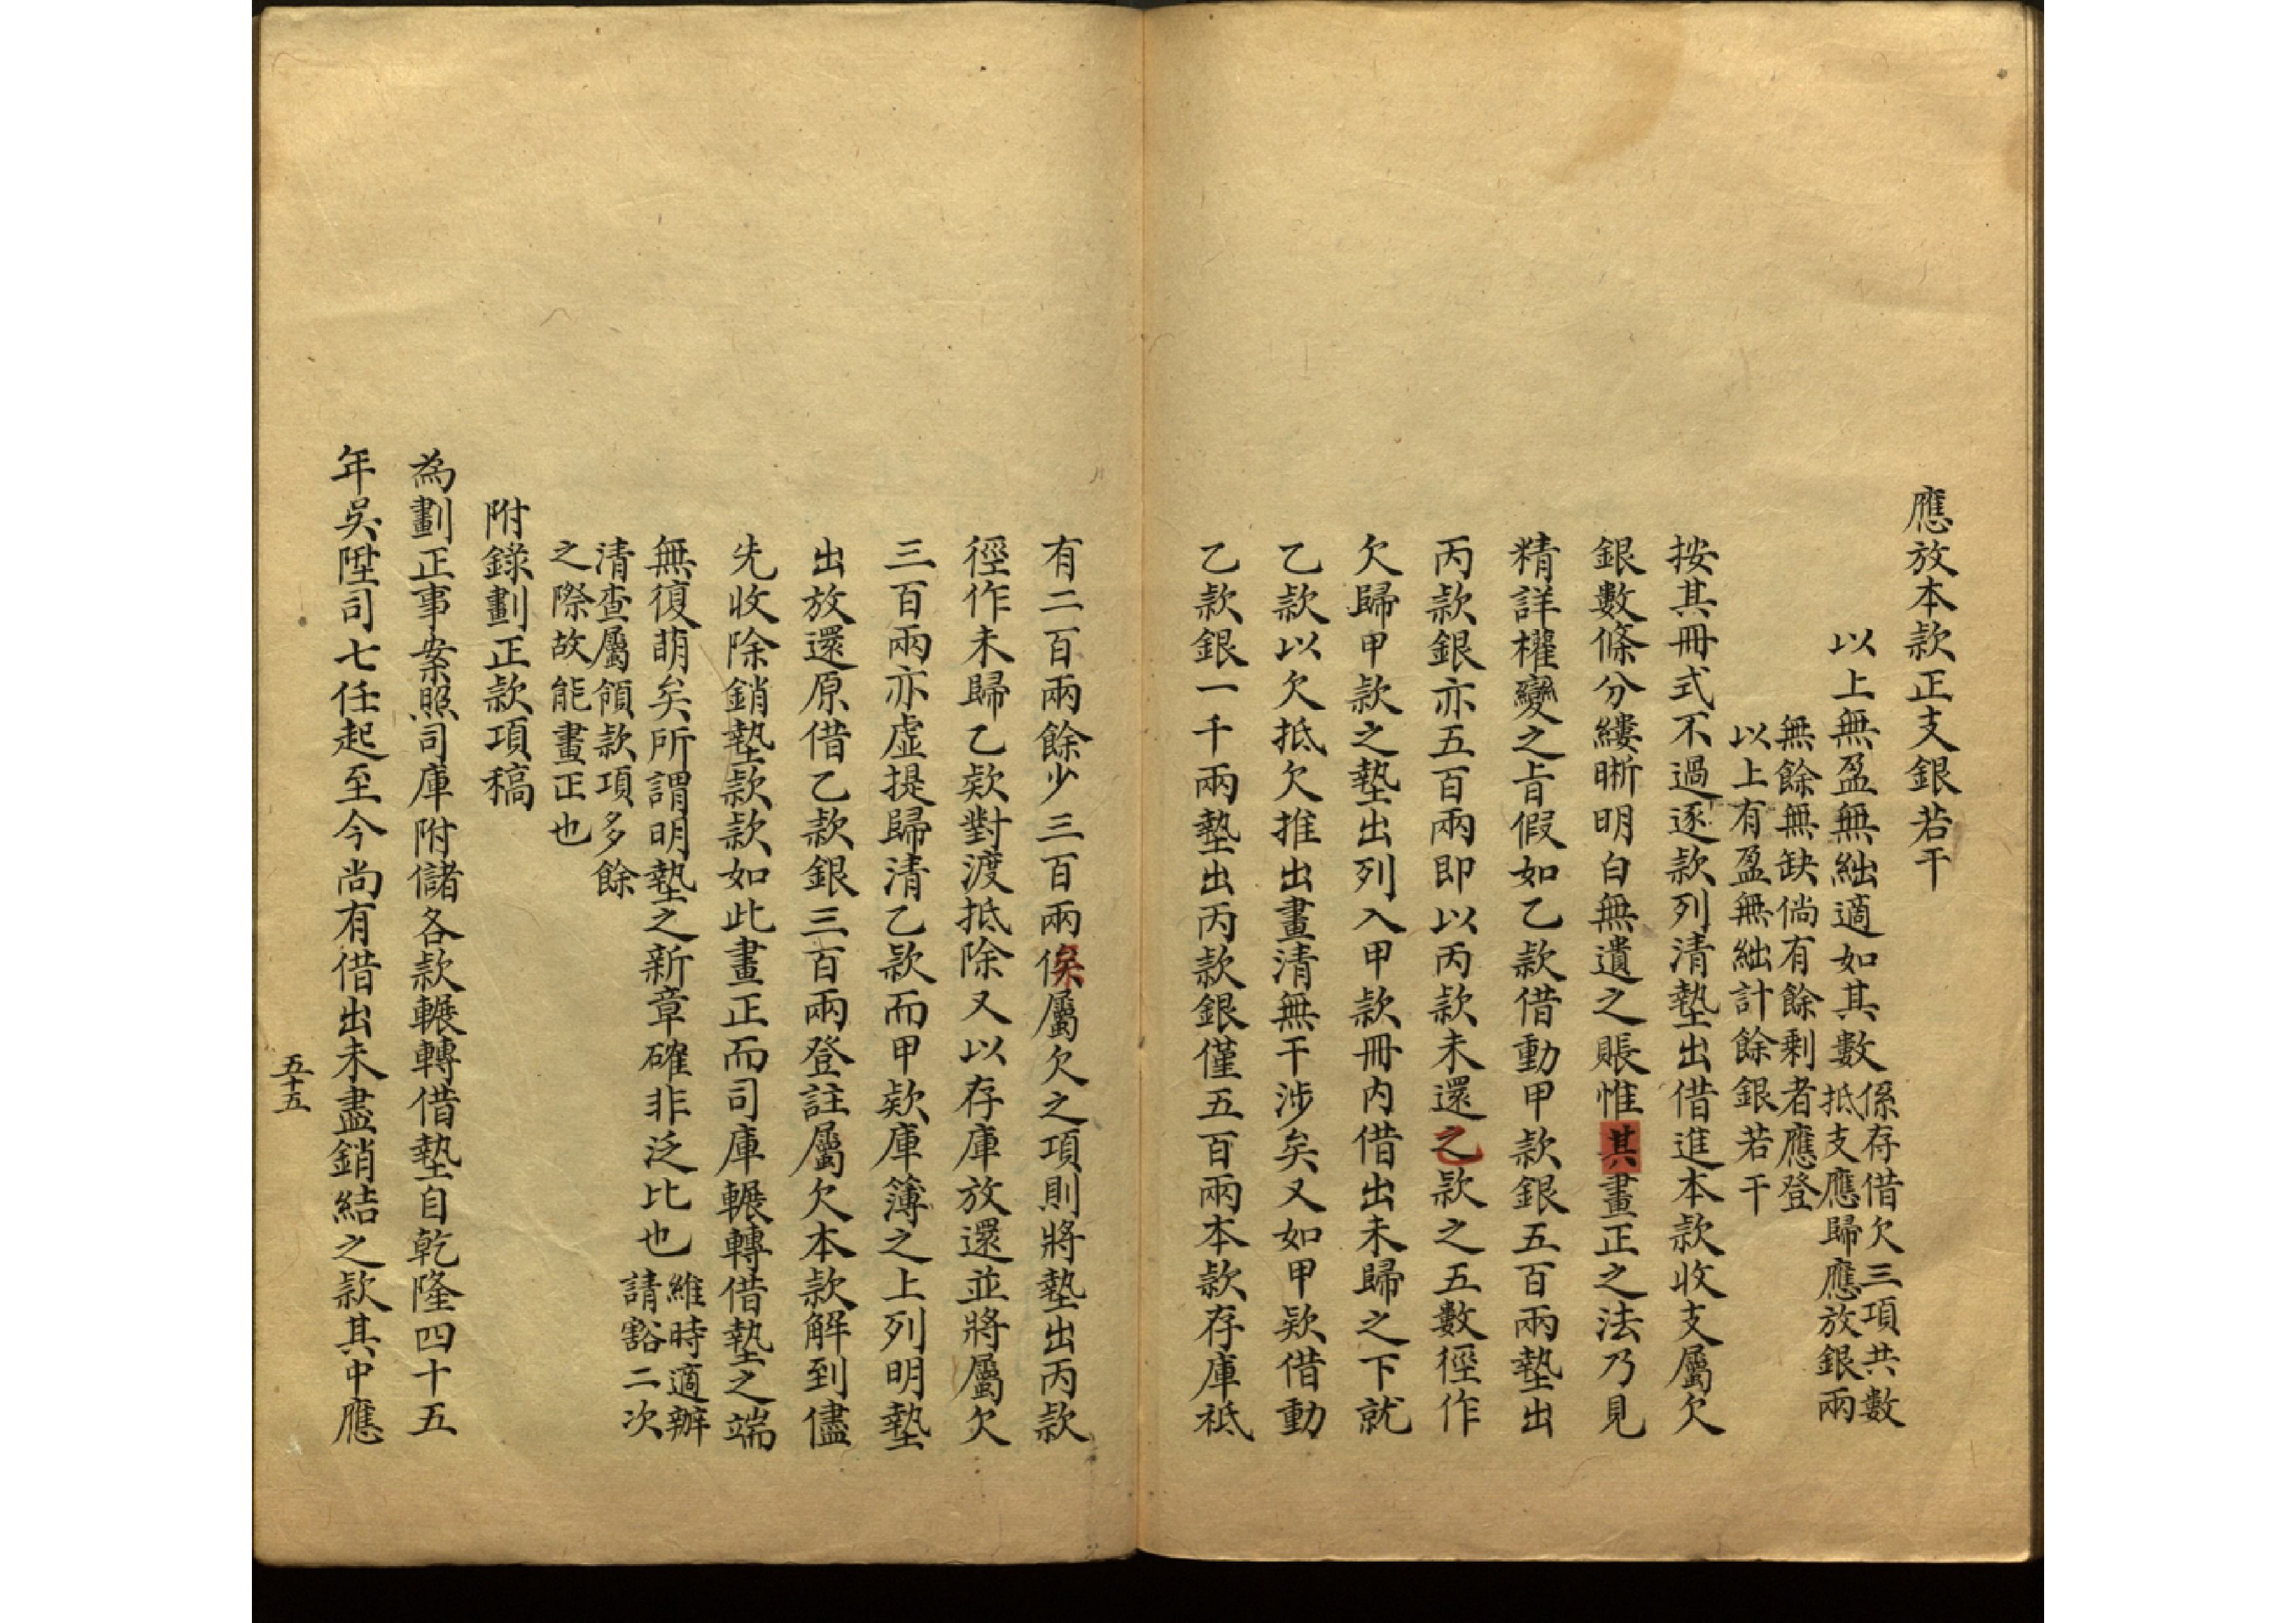 應放本款正支銀若干
以上無盈無絀適如其數
係存借欠三項共數
抵支應歸應放銀兩
無餘無缺倘有餘剩者應登
以上有盈無絀計餘銀若干
按其冊式不過逐款列清墊出借進本款收支屬欠
銀數條分縷晰明白無遺之賬惟其畫正之法乃見
精詳權變之旨假如乙款借動甲款銀五百兩墊出
丙款銀亦五百兩即以丙款未還之款之五數徑作
欠歸甲款之墊出列入甲款冊內借出未歸之下就
乙款以欠抵欠推出畫清無干涉矣又如甲欵借動
乙款銀一千兩墊出丙款銀僅五百兩本款存庫祗
有二百兩餘少三百兩俟屬欠之項則將墊出丙款
徑作未歸乙欵對渡抵除又以存庫放還並將屬欠
三百兩亦虛提歸清乙款而甲欵庫簿之上列明墊
出放還原借乙款銀三百兩登註屬欠本款解到儘
先收除銷墊款款如此畫正而司庫輾轉借墊之端
無復萌矣所謂明墊之新章確非泛比也
維時適辦
請豁二次
清查屬領款項多餘
之際故能畫正也
附錄劃正款項稿
為劃正事案照司庫附儲各款輾轉借墊自乾隆四十五
年吳陞司七任起至今尚有借出未盡銷結之款其中應
五十五